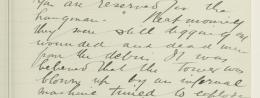 You are reserved for the
hangman." Meat mournfully
they were still digging of
wounded and dead men
from the debris. It was
believed that the tower was
blown up by an infernal
machine timed to explode